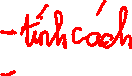 - tính cách
-